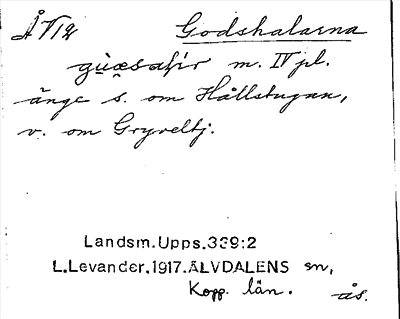 Å V12 Godshalarna
m. IV pl.
änge s. om Hållstugan,
v. om Gryveltj.
Landsm.Upps.339:2
L.Levander.1917.ÄLVDALENS sn,
Kopp. län.
ås.